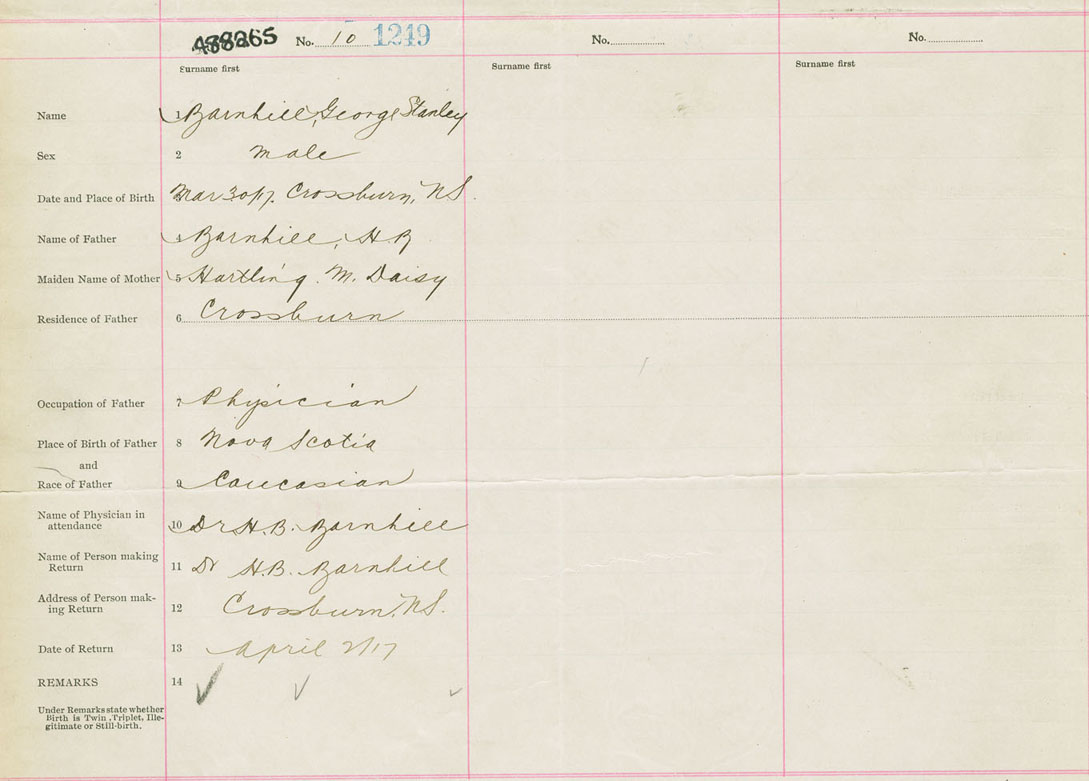 No. 10 1249 No. No.
Surname first Surname first Surname first
Name 1 Barnhill, George Stanley
Sex 2 Male
Date and Place of Birth Mar 30/17. Crossburn, NS.
Name of Father 4 Barnhill, H B
Maiden Name of Mother 5 Hartling. M. Daisy
Residence of Father 6 Crossburn
Occupation of Father 7 Physician
Place of Birth of Father 8 Nova Scotia
and
Race of Father 9 Caucasian
Name of Physician in
attendance 10 Dr H. B. Barnhill
Name of Person making
Return 11 Dr H. B. Barnhill
Address of Person mak-
ing Return 12 Crossburn, NS.
Date of Return 13 April 2/17
REMARKS 14
Under Remarks state whether
Birth is Twin, Triplet, Ille-
gitimate or Still-birth.